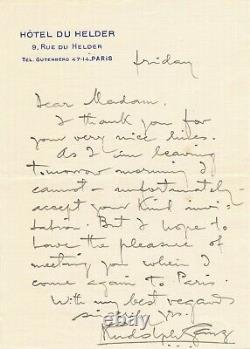 HÔTEL DU HELDER
9, RUE DU HELDER
TEL. GUTENBERG 47-14, PARIS
Friday
Dear Madam.
I thank you for
your very nice lines.
As I am leaving
tomorrow morning I
cannot - unfortunately -
accept your kind invi-
tation. But I hope to
have the pleasure of
meeting you when I
come again to Paris.
With my best regards
sincerely yrs.
Rudolph Ganz